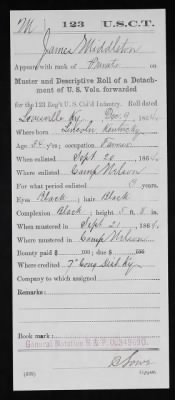 M | 123 | U.S.C.T.
James Middleton
Appears with rank of Private on
Muster and Descriptive Roll of a Detach-
ment of U. S. Vols. forwarded
for the 123 Reg't U. S. Col'd Infantry. Roll dated
Louisville Ky, Dec. 9, 1864.
Where born Lincoln Kentucky
Age 34 y'rs; occupation Farmer
When enlisted Sept 20, 1864.
Where enlisted Camp Nelson
For what period enlisted 3 years.
Eyes Black; hair Black
Complexion Black; height 5 ft. 8 in.
When mustered in Sept 21, 1864.
Where mustered in Camp Nelson
Bounty paid $ 100; due $ 100
Where credited 7" Cong Dist. Ky.
Company to which assigned
Remarks:
Book mark:
General Notation R & P.
Copyist.